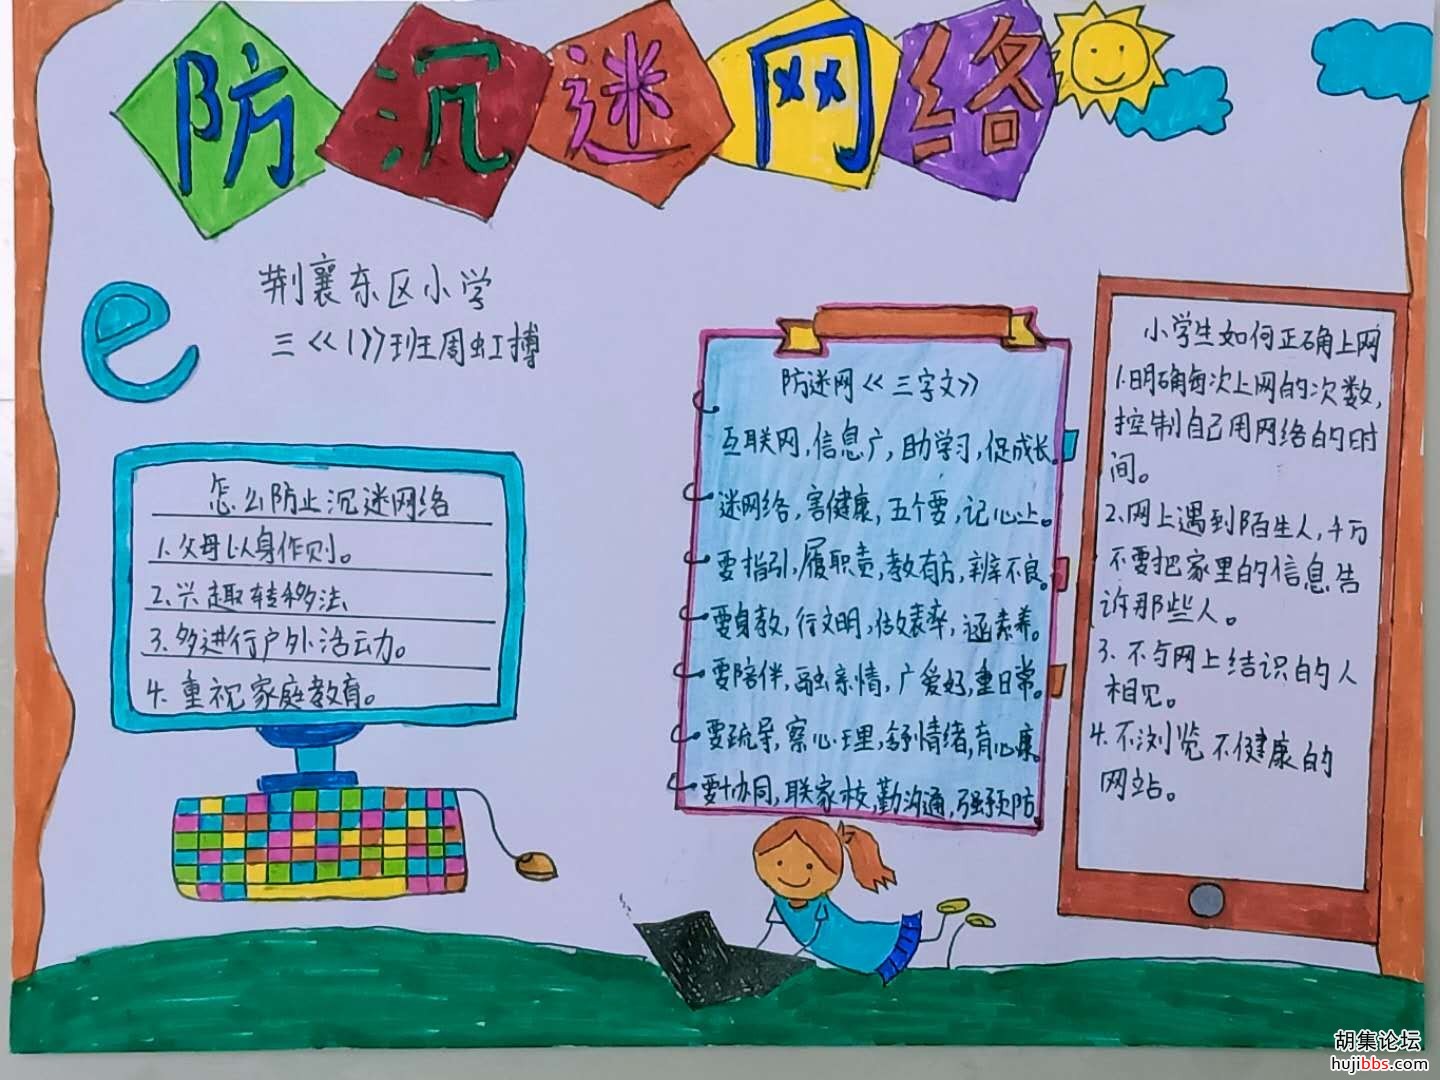 防沉迷网络
荆襄东区小学
三《1》班周虹博
e
怎么防止沉迷网络
1.父母以身作则。
2.兴趣转移法
3.多进行户外活动。
4.重视家庭教育。
防迷网《三字文》
互联网,信息广,助学习,促成长。
迷网络,害健康,五个要,记心上。
要指引,履职责,教有方,辨不良。
要身教,行文明,做表率,涵素养。
要陪伴,融亲情,广爱好,重日常。
要疏导,察心理,舒情绪,育心康。
要协同,联家校,勤沟通,强预防。
小学生如何正确上网
1.明确每次上网的次数,
控制自己用网络的时
间。
2.网上遇到陌生人,千万
不要把家里的信息告
诉那些人。
3.不与网上结识的人
相见。
4.不浏览不健康的
网站。
胡集论坛
hujibbs.com